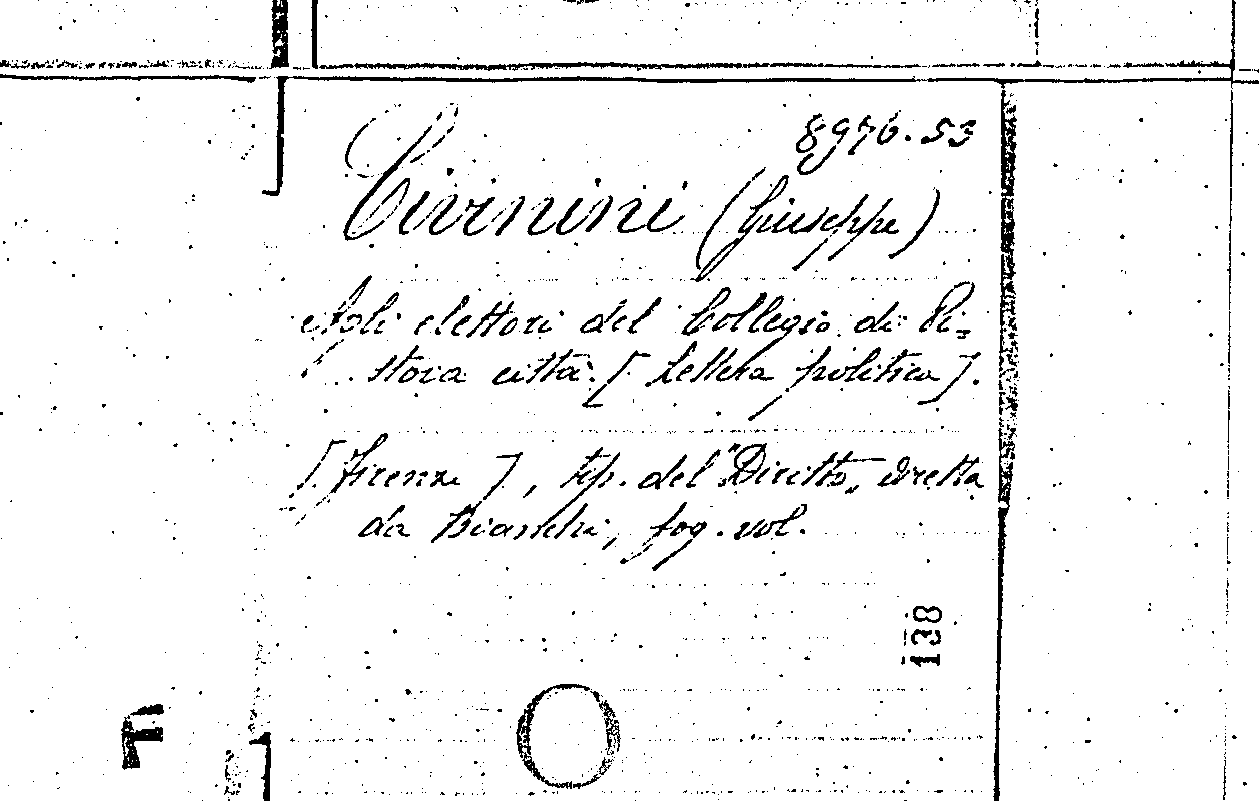 8976.53
Civinini (Giuseppe)
Agli elettori del Collegio di Pi=
stoia città. [Lettera politica].
[Firenze], tip. del "Diritto„ diretta
da Bianchi, fog. vol.
138
F